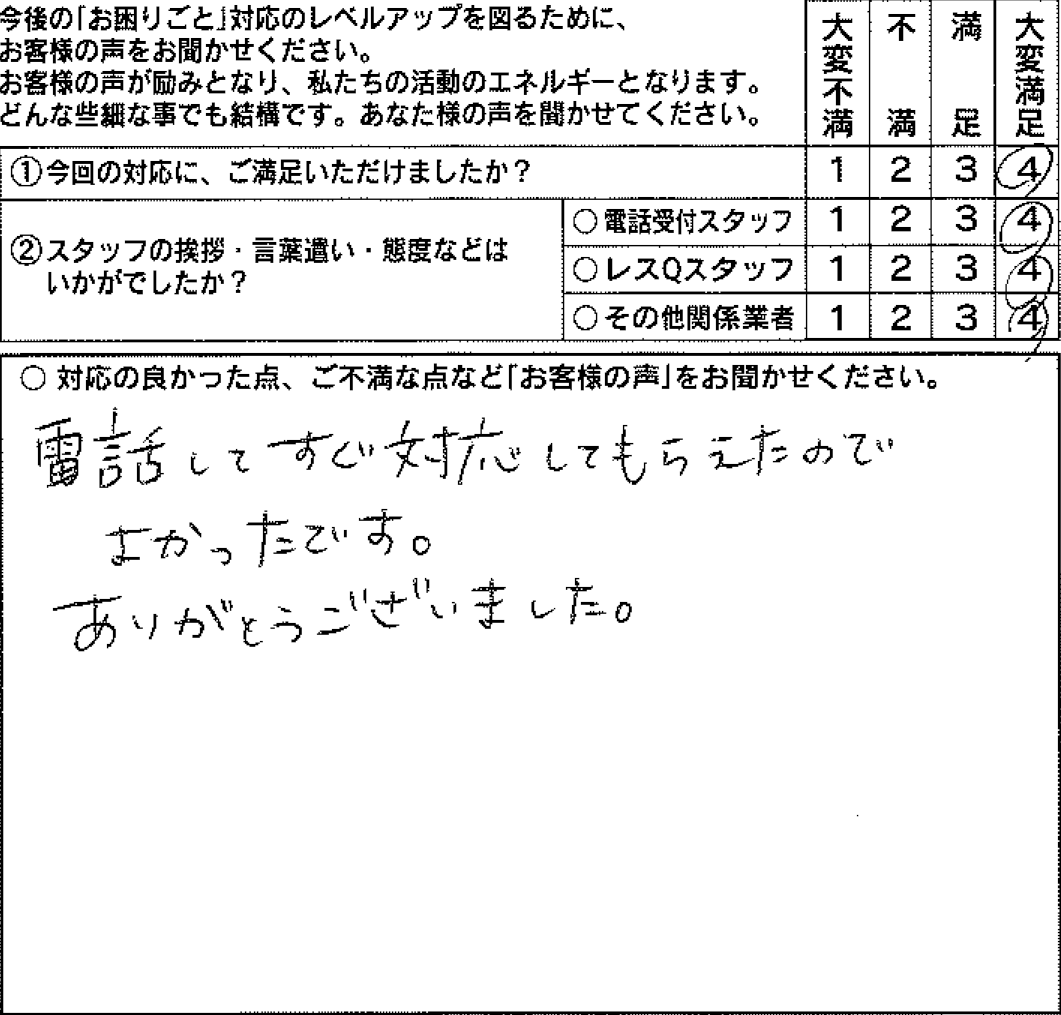 今後の「お困りごと」対応のレベルアップを図るために、
お客様の声をお聞かせください。
お客様の声が励みとなり、私たちの活動のエネルギーとなります。
どんな些細な事でも結構です。あなた様の声を聞かせてください。
大変不満 不満 満足 大変満足
①今回の対応に、ご満足いただけましたか？ 1 2 3 4
②スタッフの挨拶・言葉遣い・態度などは
いかがでしたか？
○電話受付スタッフ 1 2 3 4
○レスQスタッフ 1 2 3 4
○その他関係業者 1 2 3 4
○ 対応の良かった点、ご不満な点など「お客様の声」をお聞かせください。
電話してすぐ対応してもらえたので
よかったです。
ありがとうございました。